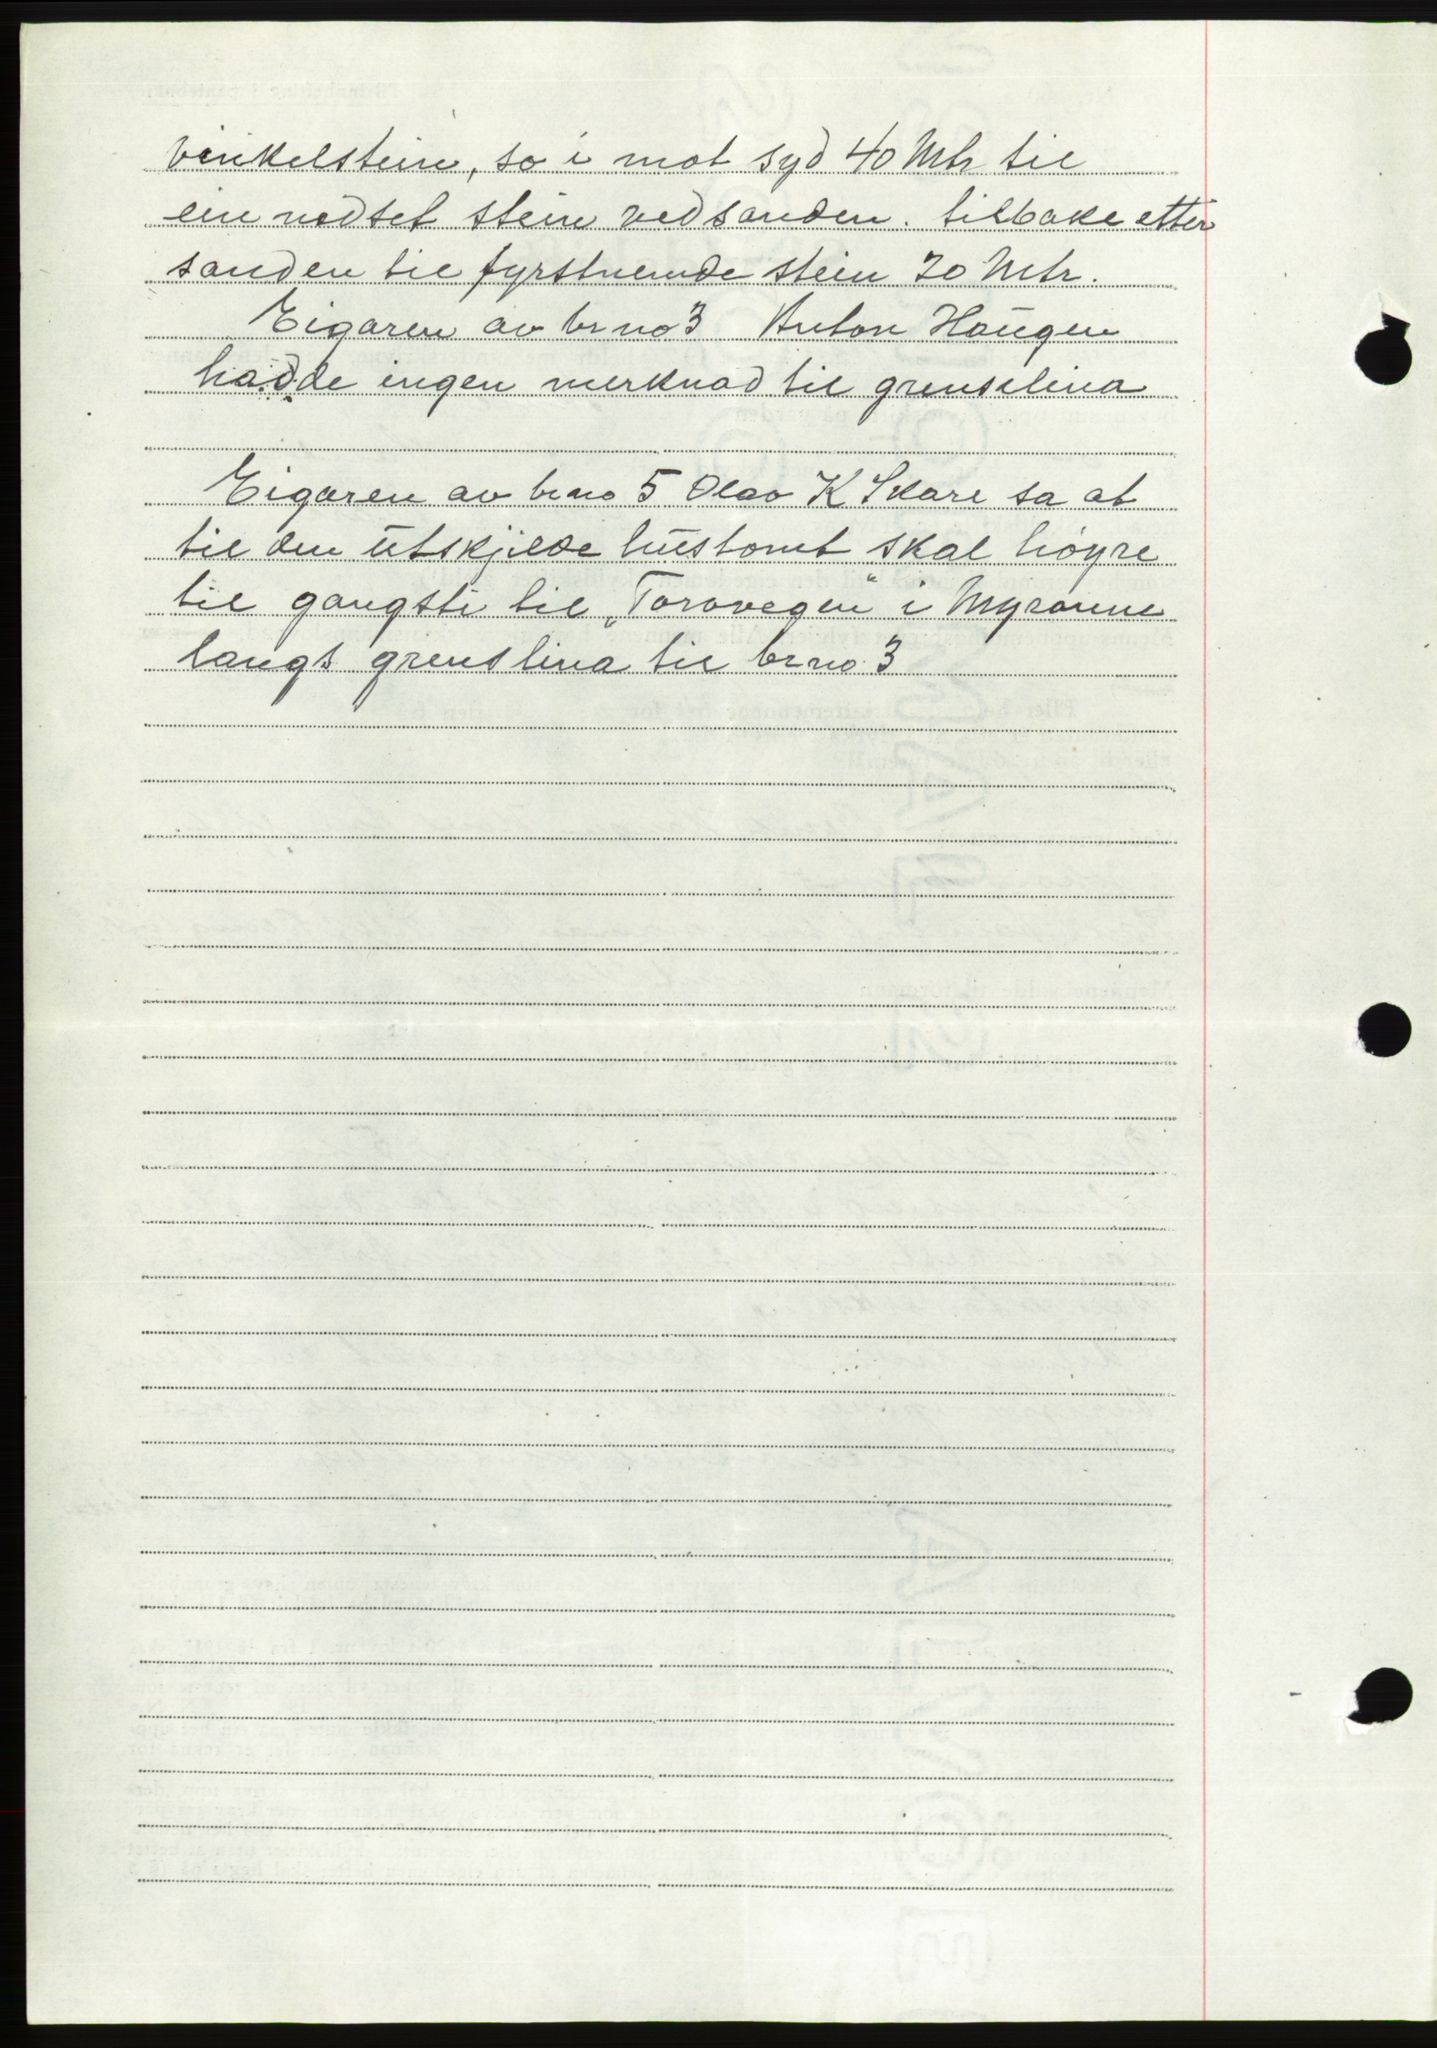 vinkelstein, so i mot syd 40 Mtr til
ein nedset stein ved sanden. tilbake etter
sanden til fyrstnemde stein 20 Mtr.
Eigaren av br no 3 Anton Haugen
hadde ingen merknad til grenselina
Eigaren av br no 5 Olav K Skare sa at
til den utskjilde hustomt skal høyre
til gangsti til „Taravegen" i Myranne
langs grenslina til br no 3